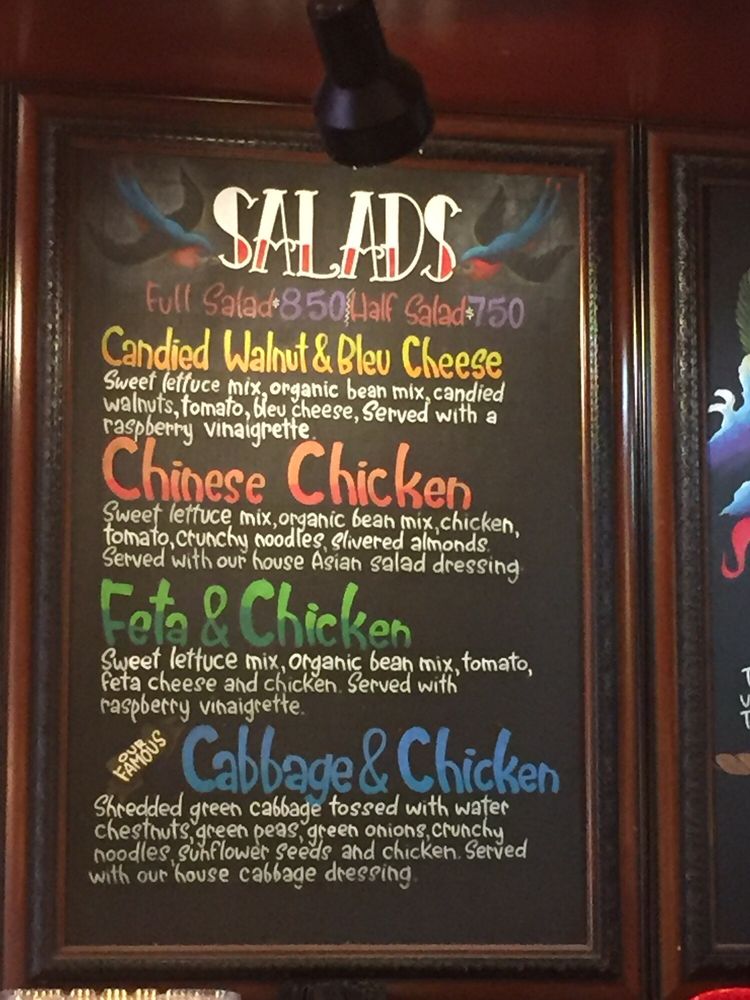 SALADS
Full Salad $8.50 Half Salad $7.50
Candied Walnut & Bleu Cheese
Sweet lettuce mix, organic bean mix, candied
walnuts, tomato, bleu cheese, Served with a
raspberry vinaigrette.
Chinese Chicken
Sweet lettuce mix, organic bean mix, chicken,
tomato, crunchy noodles, slivered almonds.
Served with our house Asian salad dressing
Feta & Chicken
Sweet lettuce mix, organic bean mix, tomato,
feta cheese and chicken. Served with
raspberry vinaigrette.
OUR FAMOUS
Cabbage & Chicken
Shredded green cabbage tossed with water
chestnuts, green peas, green onions, crunchy
noodles, sunflower seeds, and chicken. Served
with our house cabbage dressing.